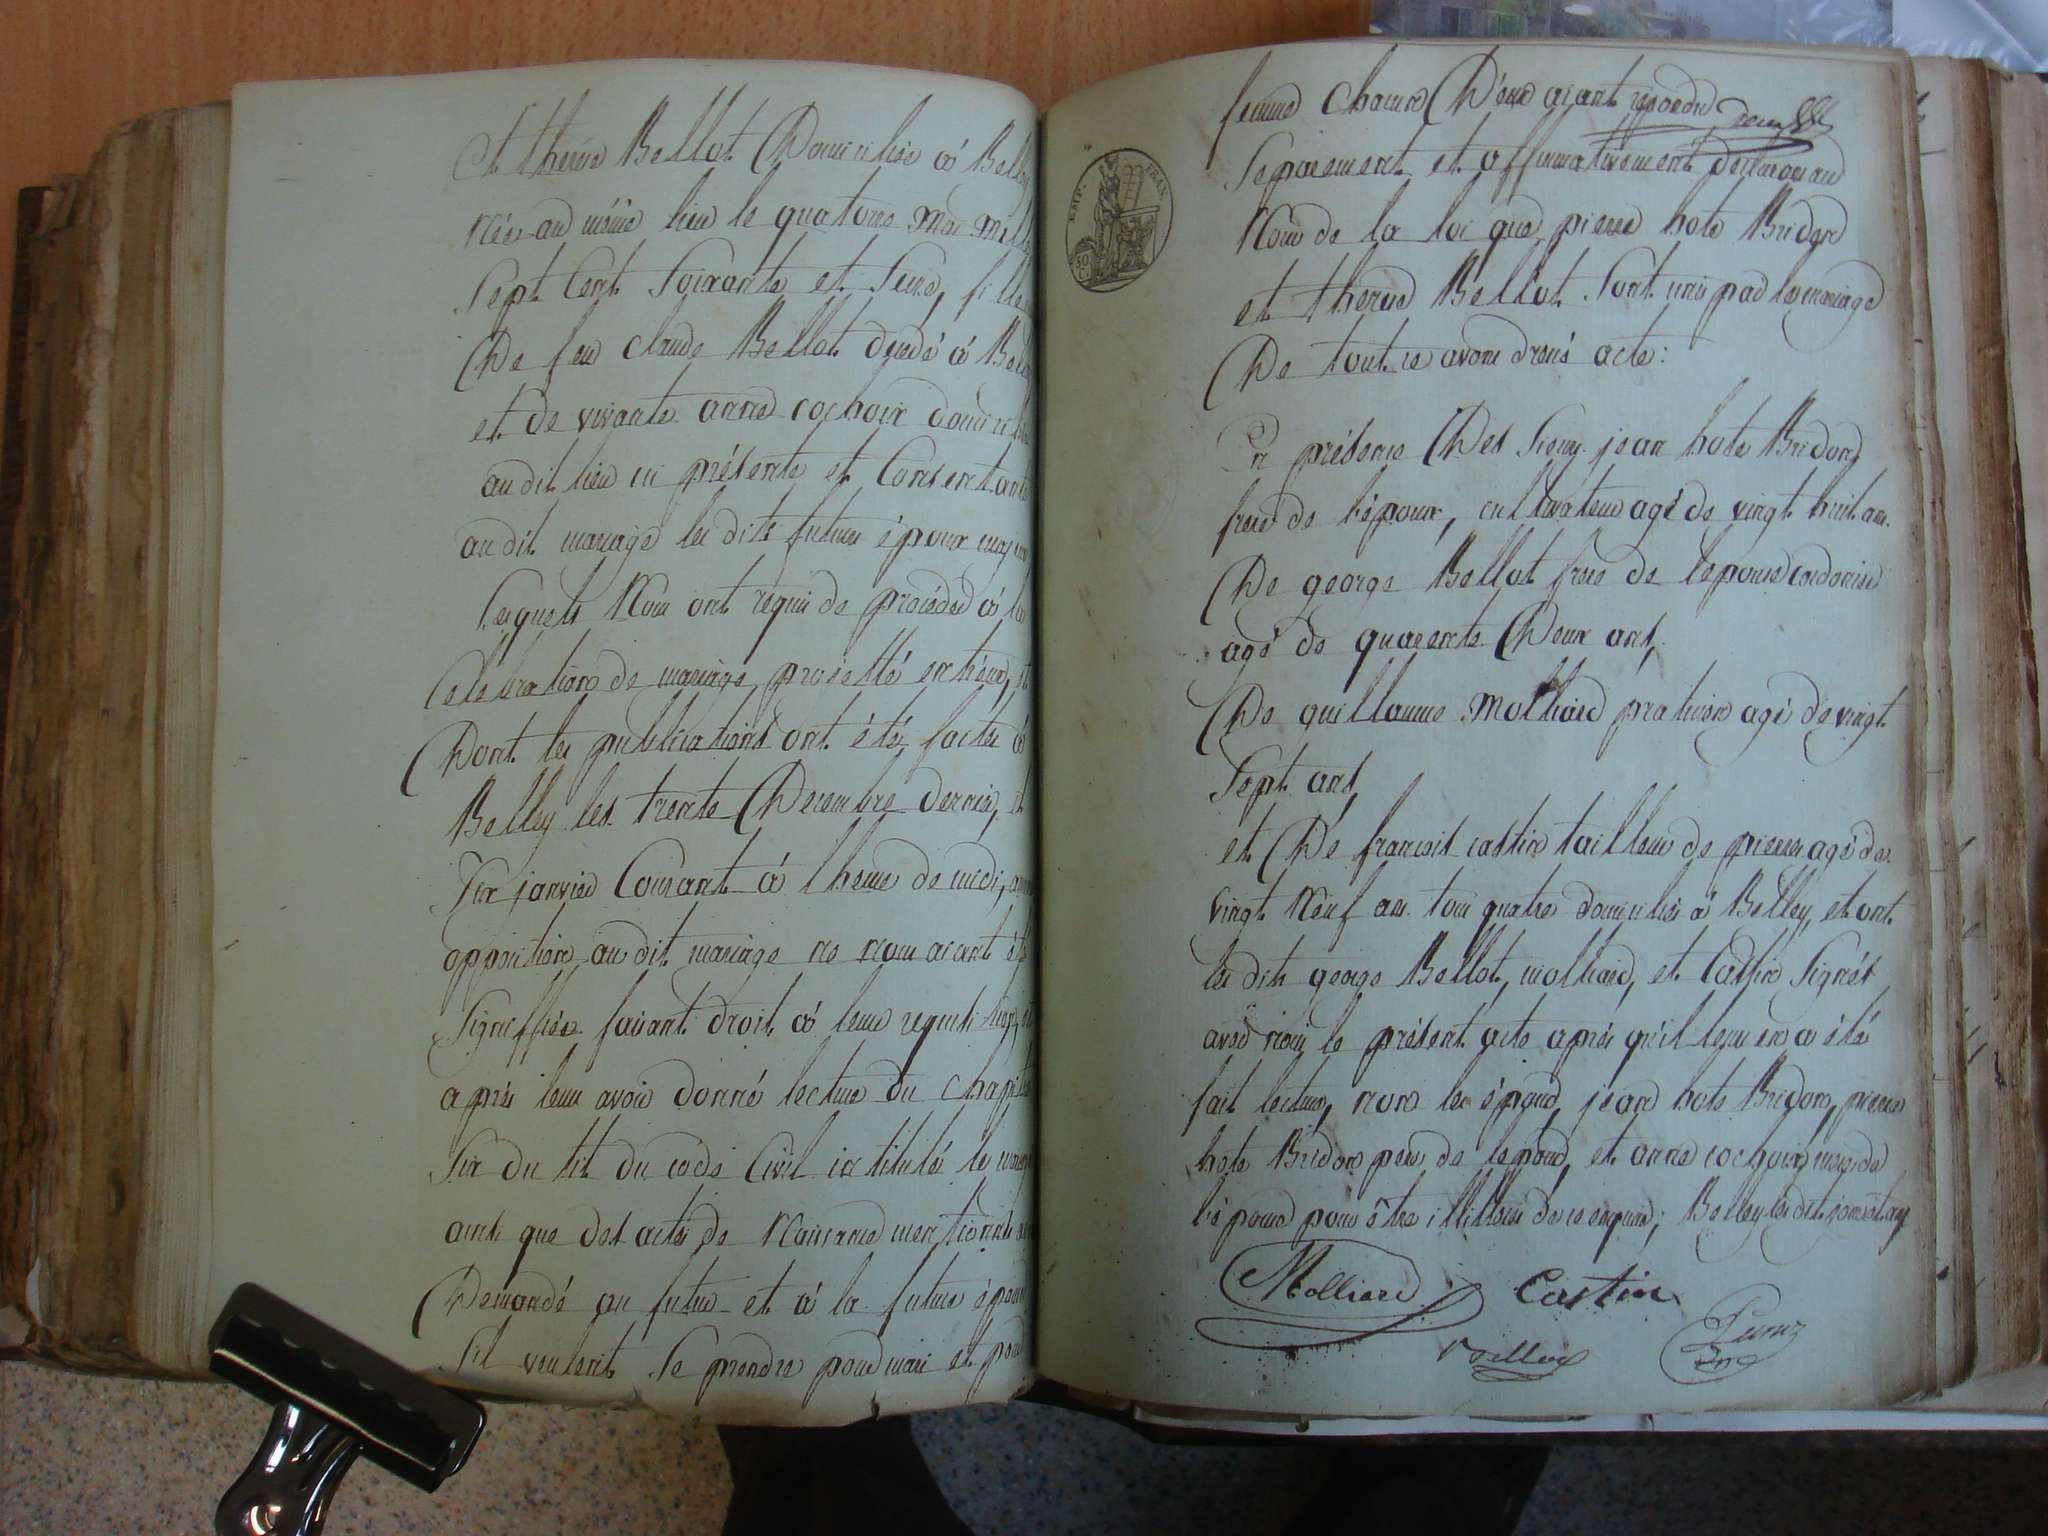 Et therèse Bellot Domiciliée à Belley
Née au même lieu le quatorze Mai Mille
Sept Cent Soixante et Seize, fille
De feu claude Bellot décédé à Belley
et de vivante anne cochoix domiciliée
au dit lieu ici présente et Consentante
au dit mariage les dits futurs époux majeurs
Lesquels Nous ont requis de procéder à la
Celebration de mariage projetté entr'eux, et
Dont les publications ont été faites à
Belley les trente Decembre dernier, et
Six janvier Courant à l'heure de midi, aucune
opposition au dit mariage ne nous aiant été
Signiffiée faisant droit à leur requisition, et
après leur avoir donné lecture du chapitre
Six du tit. du code Civil intitulé le mariage
ainsi que des actes de Naissance mentionnés
Demandé au futur et à la future épouse
S'il veulent Se prendre pour mari et pour
femme Chacun D'eux aiant repondu
Séparement et affirmativement declarons au
Nom de la loi que pierre hote Bridon
et therese Bellot Sont unis par le mariage
De tout ce avons dressé acte:
EMP. FRAN.
50 C.
En présence Des Sieurs jean hote Bridon
frere de l'époux, cultivateur agé de vingt huit ans.
De george Bellot frere de lepouse cordonnier
agé de quarente Deux ans,
De guillaume Molliard praticien agé de vingt
Sept ans,
et De francois castin tailleur de pierres agé de
vingt Neuf ans tous quatre domiciliés à Belley, et ont
les dits george Bellot, molliard, et Castin Signés
avec nous le présent acte après qu'il leur en a été
fait lecture, non les époux, jean hote Bridon, pierre
hote Bridon pere de lepoux, et anne cochoix mere de
l'épouse pour être illitterés de ce enquis; Belley les dits jour et an
Molliard Castin
Bellot